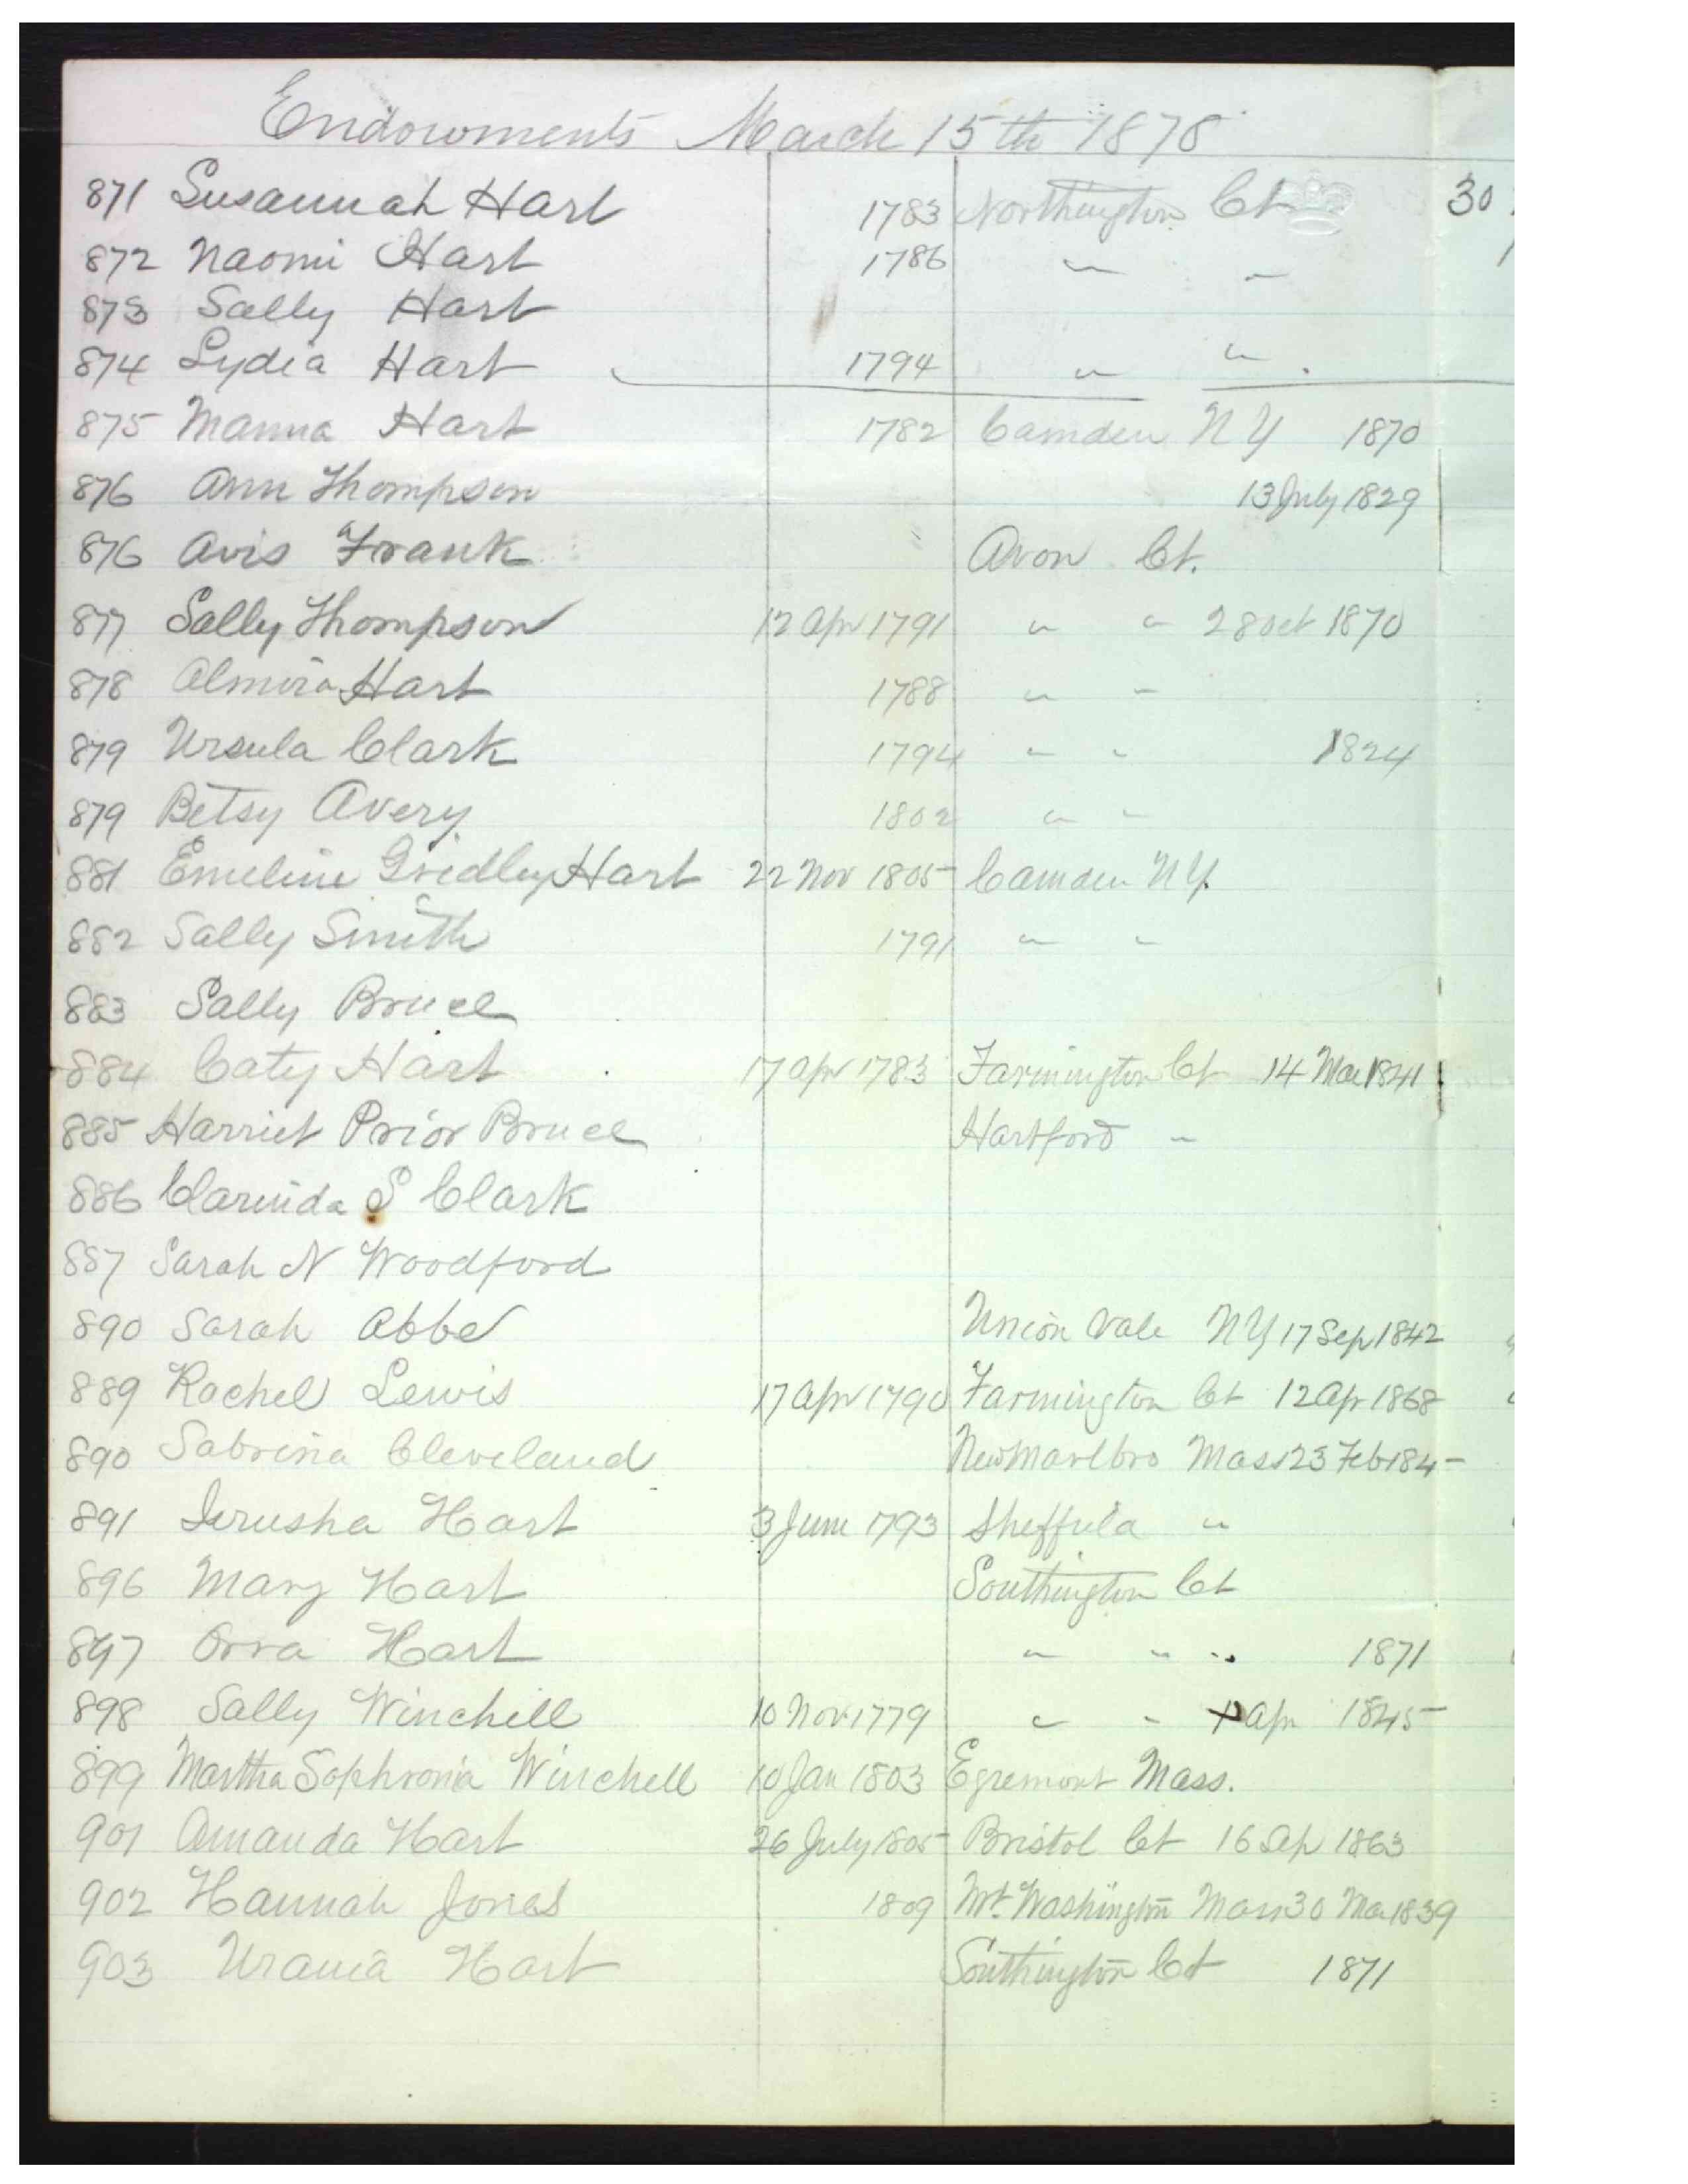 Endowments March 15th 1878
871 Susannah Hart 1783 Northington Ct 30
872 Naomi Hart 1786 " "
873 Sally Hart
874 Lydia Hart 1794 " "
875 Manna Hart 1782 Camden N Y 1870
876 Ann Thompson 13 July 1829
876 Avis Frank Avon Ct.
877 Sally Thompson 12 Apr 1791 " " 28 Oct 1870
878 Almira Hart 1788 " "
879 Ursula Clark 1794 " " 1824
879 Betsy Avery 1802 " "
881 Emeline Gridley Hart 22 Nov 1805 Camden N Y.
882 Sally Smith 1791 " "
883 Sally Bruce
884 Caty Hart 17 Apr 1783 Farmington Ct 14 Mar 1841
885 Harriet Prior Bruce Hartford "
886 Clarinda S Clark
887 Sarah N Woodford
890 Sarah Abbe Union Vale N Y 17 Sep 1842
889 Rachel Lewis 17 Apr 1790 Farmington Ct 12 Apr 1868
890 Sabrina Cleveland New Marlbro Mass 23 Feb 184-
891 Jerusha Hart 3 June 1793 Sheffield "
896 Mary Hart Southington Ct
897 Orra Hart " " 1871
898 Sally Winchell 10 Nov 1779 " " Apr 1845
899 Martha Sophronia Winchell 10 Jan 1803 Egremont Mass.
901 Amanda Hart 26 July 1805 Bristol Ct 16 Sep 1863
902 Hannah Jones 1809 Mt. Washington Mass 30 Mar 1839
903 Urania Hart Southington Ct 1871